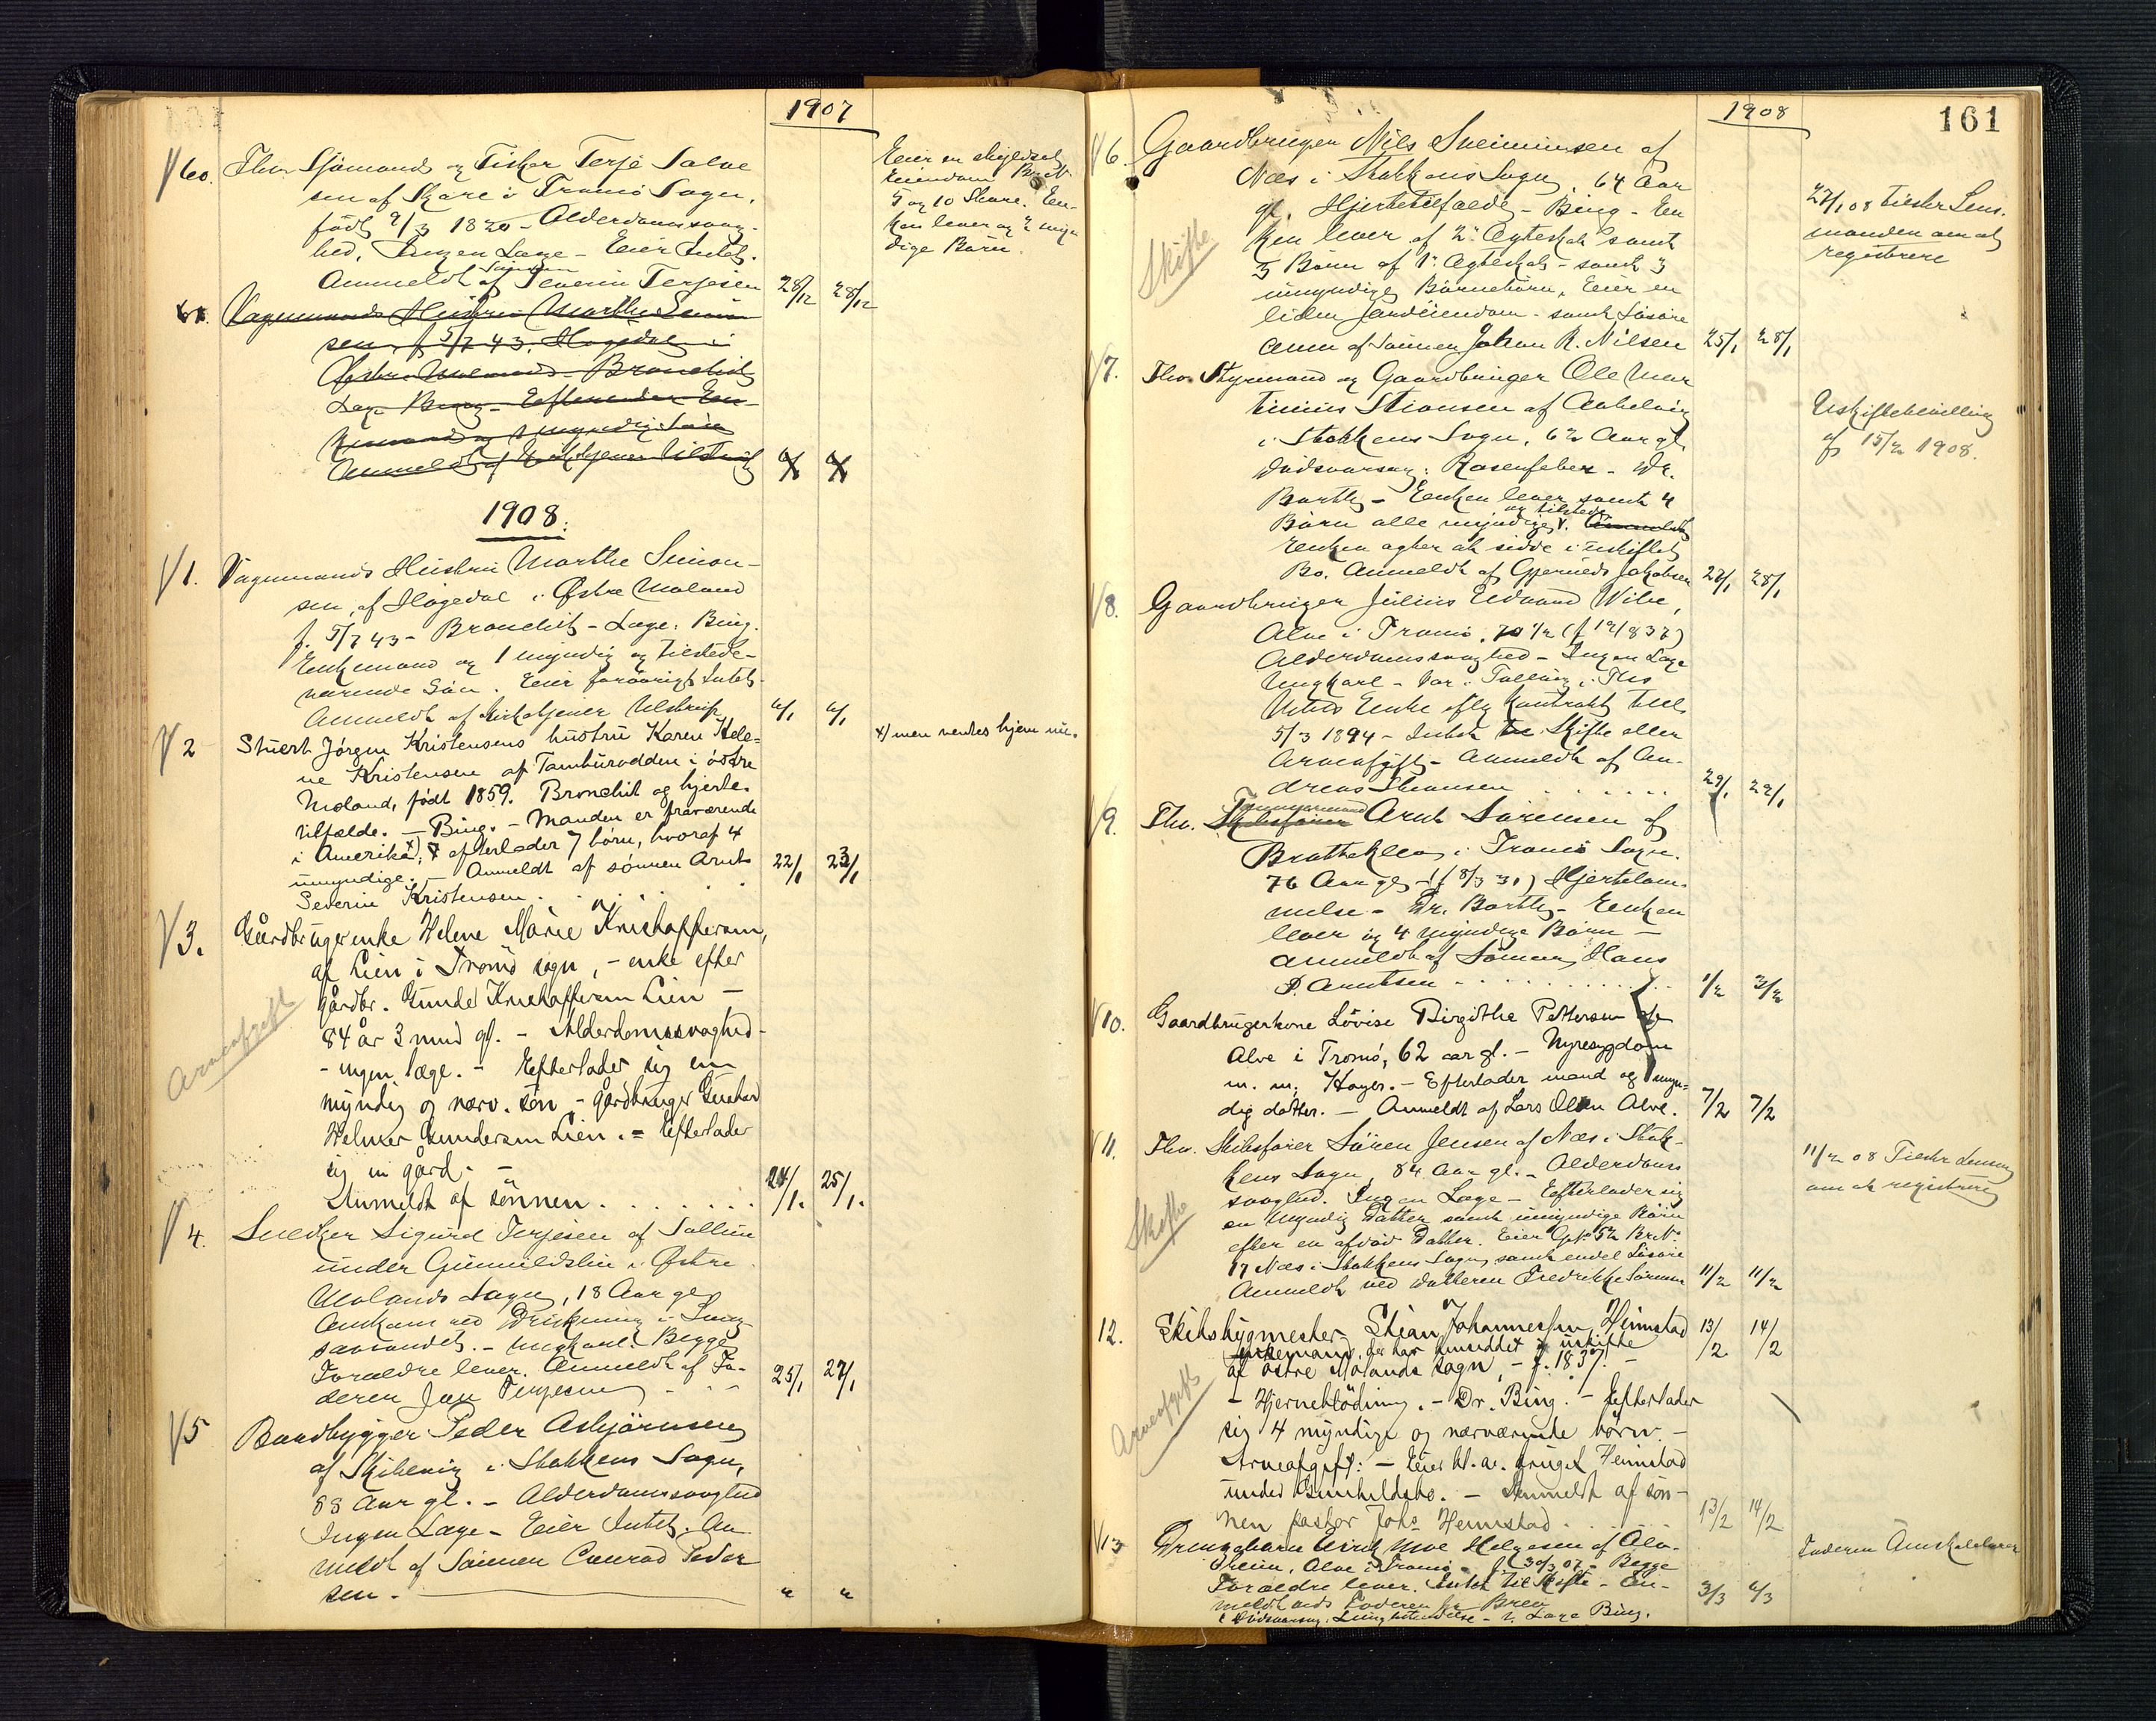 1907
60. Fhv. Sjömand og Fisker Terje Salve
sen af Skare i Tromö Sogn,
född 9/3 1820 - Alderdomssvag-
hed, Ingen Læge - Eier Intet.
Anmeldt af Severin Terjesen 28/12 28/12
Eier en skyldsat
Eiendom BrNo
5 og 10 Skare. En-
ken lever og 2 myn
dige Börn.
61. Vognmands Hustru Marthe Simon
sen, f 5/7 43, Hagedal i
Östre Molands - Bronchit
Læge Bing - Efterlader En-
kemand og 1 myndig Sön
Anmeldt af Kirketjener Ulstrup
1908.
1. Vognmands Hustru Marthe Simon-
sen, af Hagedal i Östre Moland
f. 5/7 43 - Bronchit - Læge: Bing.
Enkemand og 1 myndig og tilstede-
værende Sön. Eier forövrigt Intet.
Anmeldt af Kirketjener Ulstrup
2 Stuert Jörgen Kristensens hustru Karen Hele-
ne Kristensen af Tamburodden i östre
Moland, född 1859. Bronchit og hjerte-
tilfælde. - Bing. - Manden er fraværende
i Amerika x); efterlader 7 börn, hvoraf 4
umyndige. - Anmeldt af sönnen Arnt 22/1 23/1
Severin Kristensen . . .
x) men ventes hjem nu.
3. Gårdbrugerenke Helene Marie Kristoffersen,
af Lien i Tromö sogn, - enke efter
gårdbr. Gunde Kristoffersen Lien -
84 år 3 mnd gl. - Alderdomssvaghed -
- ingen læge. - Efterlader sig en
myndig og nærv. sön - gårdbruger Gustav
Helmer Gundersen Lien. = Efterlader
sig en gård. -
Anmeldt af sönnen . . . . . . . 24/1. 25/1.
Arveafgift
4. Snedker Sigurd Terjesen af Sollien
under Gunnildsbu i Östre
Molands Sogn, 18 Aar gl.
Omkom ved Drukning i Long-
sævandet. - Ungkarl. Begge
Forældre lever. Anmeldt af Fa-
deren Jens Terjesen - - - 25/1 27/1
5 Baadbygger Peder Asbjörnsen
af Skibevig i Stokkens Sogn,
83 Aar gl. - Alderdomssvaghed
Ingen Læge - Eier Intet. An-
meldt af Sönnen Conrad Peder
sen. - " "
1908
161
6. Gaardbruger Nils Sveinunsen af
Næs i Stokkens Sogn, 64 Aar
gl. Hjertetilfælde - Bing - En
ken lever af 2. Ægteskab samt
3 Börn af 1. Ægteskab - samt 3
umyndige Börnebörn, Eier en
liden Jordeiendom - samt Lösöre
Anm af Sönnen Johan R. Nilsen 25/1 28/1
Skifte
27/1 08 tilskr Lens.
manden om at
registrere
7. Fhv. Styrmand og Gaardbruger Ole Mar
tinius Stiansen af
i Stokkens Sogn, 62 Aar gl,
Dödsaarsag: Rosenfeber - Dr.
Barth - Enken lever samt 4
Börn alle myndige og tilstede. Anmeldt
Enken agter at sidde i uskiftet
Bo. Anmeldt af Gjeruld Jakobsen 27/1 28/1
Uskiftebevilling
af 15/2 1908.
8. Gaardbruger Julius Edvard Wibe,
Alve i Tromö, 70 1/2 (f 837)
Alderdomssvaghed - Ingen Læge
Ungkarl - Var i
Enke eftr Kontrakt tinl.
5/3 1894 - Intet til Skifte eller
Arveafgift - Anmeldt af An-
dreas Stiansen . . . . . . 29/1 29/1
9. Fhv. Tömmermand Skibsförer Arnt Sörensen af
Brattekleiv i Tromö Sogn.
76 Aar gl. (f 8/3 31) Hjertelam-
melse - Dr. Barth - Enken
lever og 4 myndige Börn -
Anmeldt af Sönnen Hans
P. Arntsen - . . . . . . 1/2 3/2
10. Gaardbrugerkone Lovise Birgithe Pettersen af
Alve i Tromö, 62 aar gl. - Nyresygdom
m. m. Høyer. - Efterlader mand og 1 myn-
dig datter. - Anmeldt af Lars Olsen Alve. 7/2 7/2
11. Fhv. Skibsförer Sören Jensen af Næs i Stok-
kens Sogn, 84 Aar gl. - Alderdoms
svaghed. Ingen Læge - Efterlader sig
en Myndig Datter samt umyndige Börn
efter en afdöd Datter. Eier GNo 52 BrNo
17 Næs i Stokkens Sogn, samt endel Lösöre
Anmeldt ved Datteren Fredrikke Sörensen 11/2 11/2
Skifte
11/2 08 Tilskr Lensm
om at registrere
12. Skibsbygmester Stian Johannessen Heimstad 13/2 14/2
Enkemand, der har hensiddet i uskifte
af östre Molands sogn, - f. 1837. -
- Hjerneblödning. - Dr. Bing. - Efterlader
sig 4 myndige og nærværende börn. -
Arveafgift: - Eier bl. a. bruget Heimstad
under Gunhildsbo. - Anmeldt af sön-
nen pastor Johs Heimstad . . . 13/2 14/2
Arveafgift
13 Drengebarn Moe Helgesen af
heim, Alve i Tromö - f 30/3 07 - Begge
Forældre lever. Intet til Skifte - An-
meldt ved Faderen pr Brev 3/3 4/3
Dödsaarsag: Lungebetændelse - Læge Bing.
Faderen